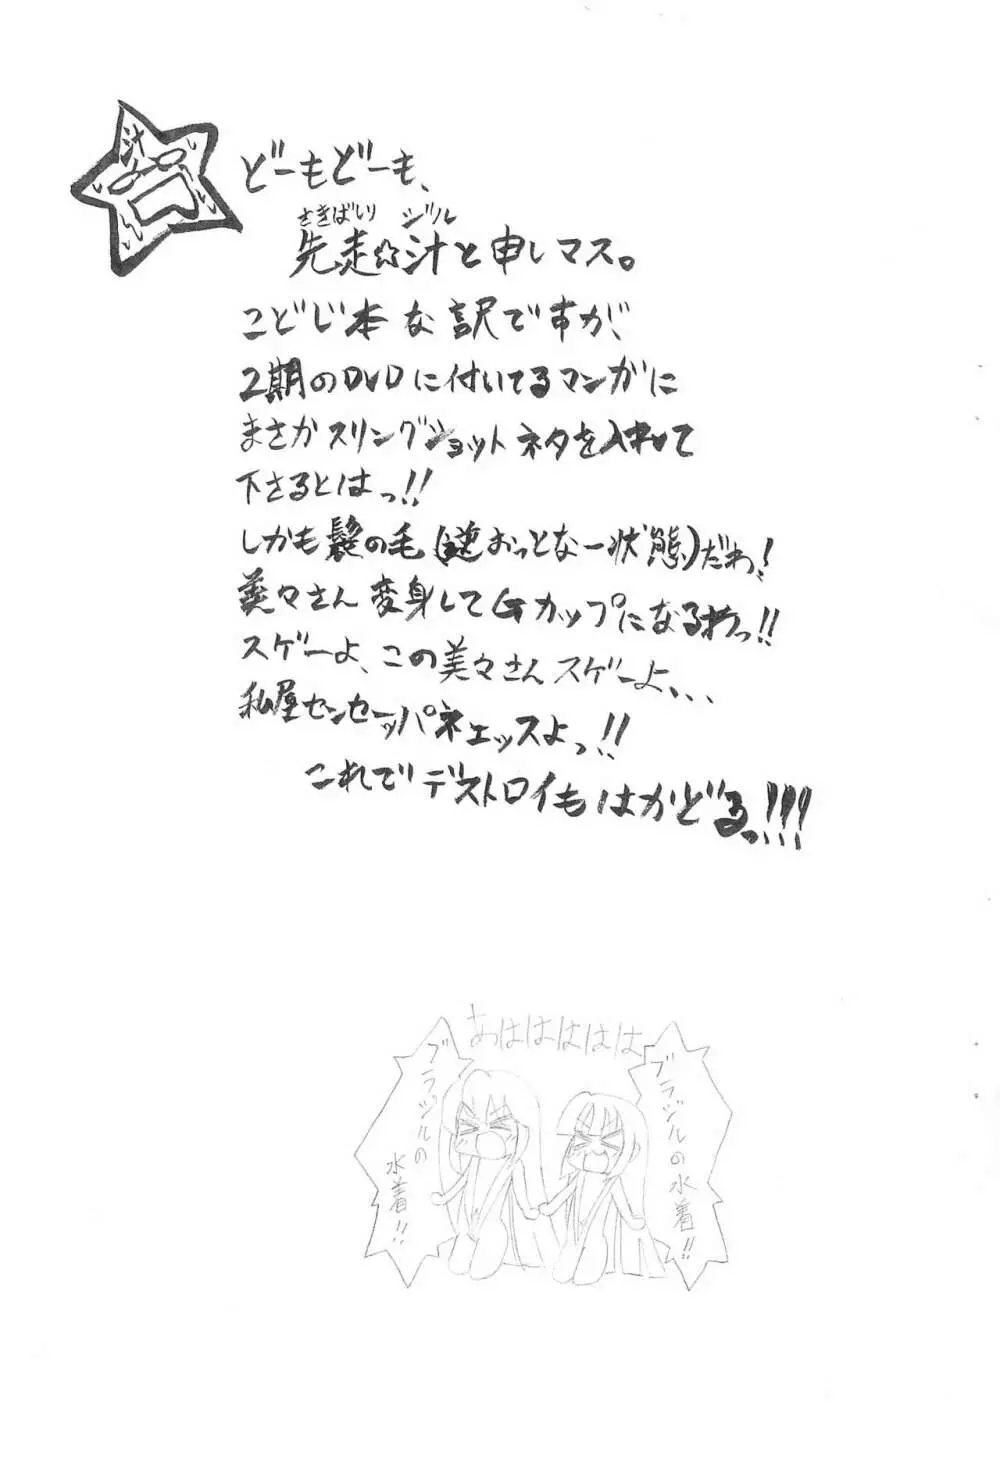 汁
どーもどーも、
さきばしり ジル
先走☆汁と申しマス。
こどじ本な訳ですが、
2期のDVDに付いてるマンガに
まさかスリングショットネタを入れて
下さるとはっ!!
しかも髪の毛(逆おっとな一状態)だわ!
美々さん変身してGカップになるわっ!!
スゲーよ、この美々さんスゲーよ、、、
私屋センセーッパネェッスよっ!!
これでデストロイもはかどるっ!!!
あはははははは
ブラジルの
水着!!
ブラジルの水着!!